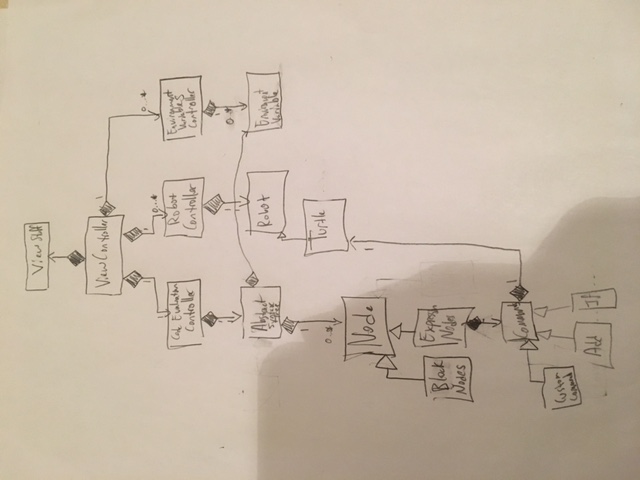 View Stuff
View Controller
1
1
0...*
0...*
Code Evaluation
Controller
Robot
Controller
Environment
Variables
Controller
1
1
0...*
Abstract
Syntax
Tree
Robot
Environment
Variable
1
0...*
Turtle
Node
1
Block
Nodes
Expression
Nodes
Command
1
Custom
Command
Add
If
...